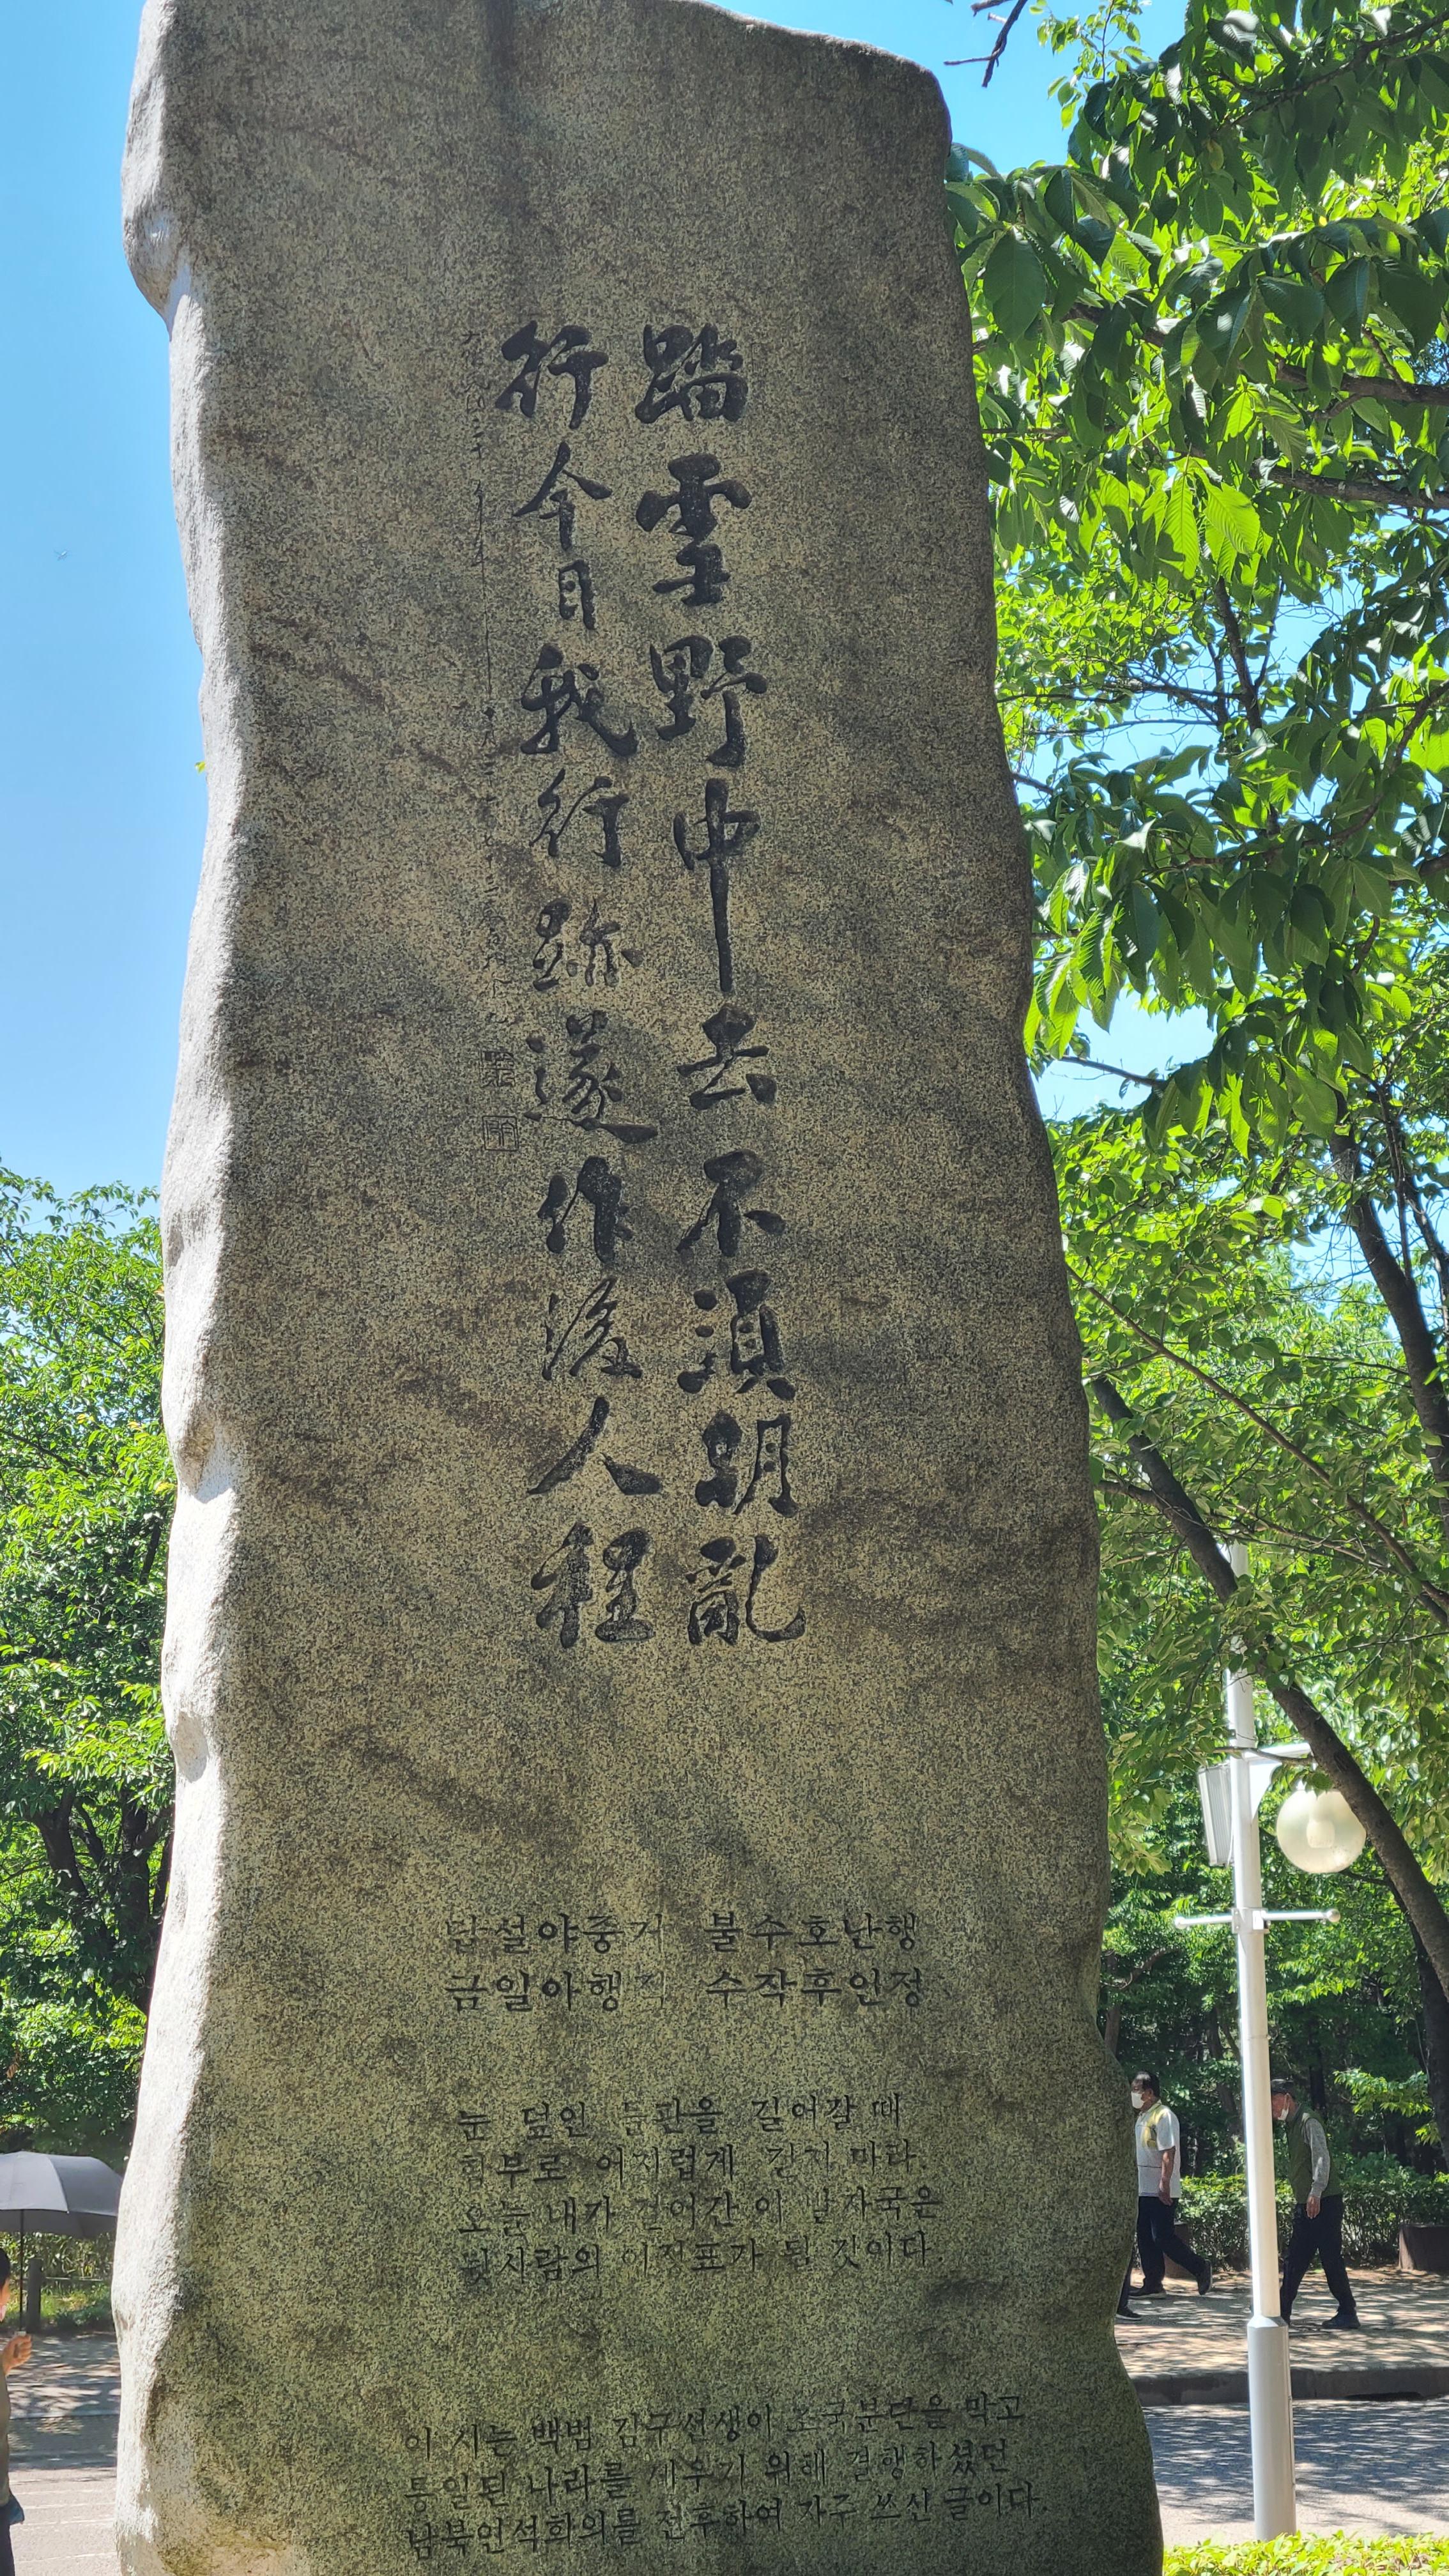 踏雪野中去不須胡亂
行今日我行跡遂作後人程
답설야중거 불수호난행
금일아행적 수작후인정
눈 덮인 들판을 걸어갈 때
함부로 어지럽게 걷지 마라.
오늘 내가 걸어간 이 발자국은
뒷사람의 이정표가 될 것이다.
이 시는 백범 김구선생이 조국분단을 막고
통일된 나라를 세우기 위해 결행하셨던
남북연석회의를 전후하여 자주 쓰신 글이다.